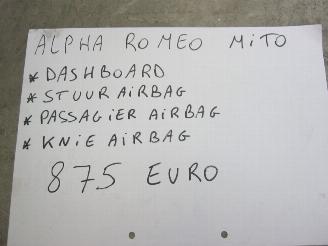 ALPHA ROMEO MiTO
* DASHBOARD
* STUUR AiRBAG
* PASSAGiER AiRBAG
* KNiE AiRBAG
875 EURO